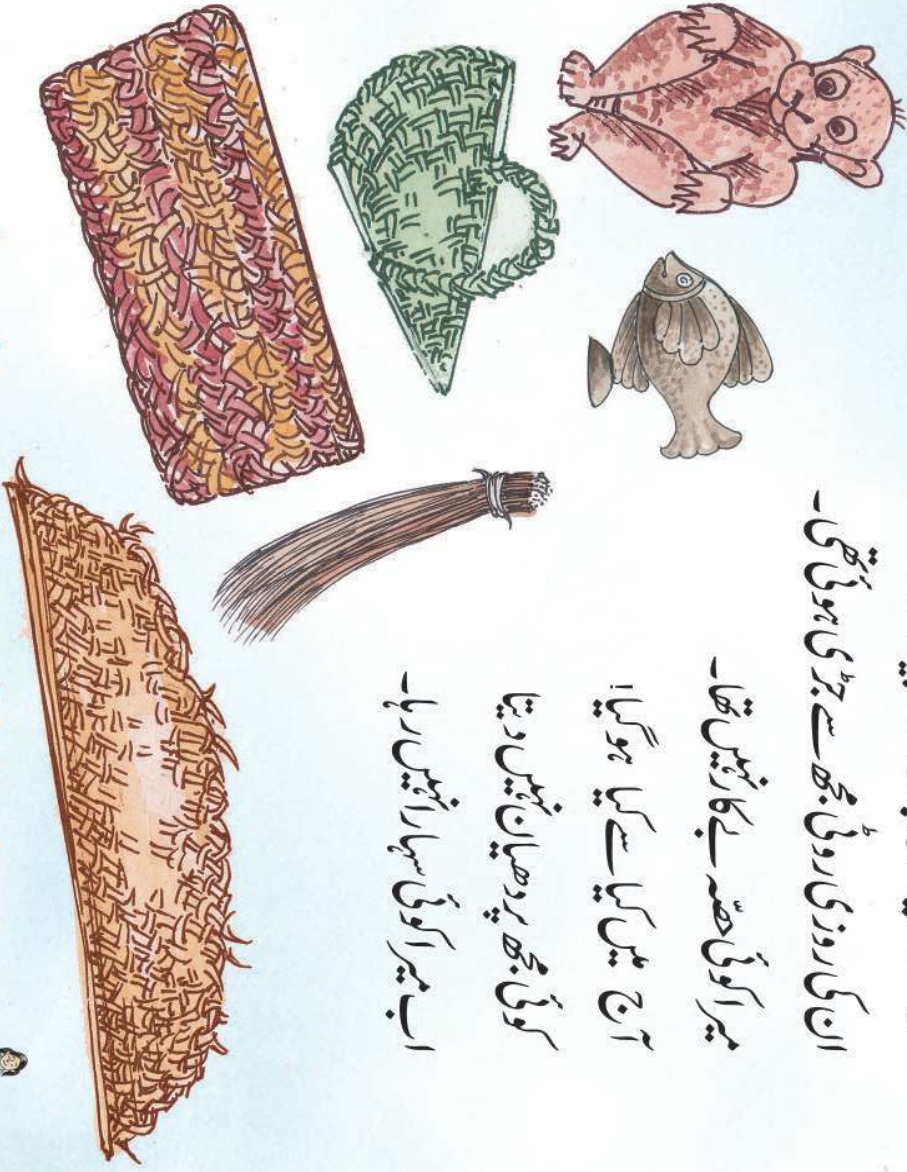 ان کی روزی روٹی مجھ سے جڑی ہوئی تھی۔
میرا کوئی حصّہ بے کار نہیں تھا۔
آج میں کیا سے کیا ہو گیا!
کوئی مجھ پر دھیان نہیں دیتا
اب میرا کوئی سہارا نہیں رہا۔